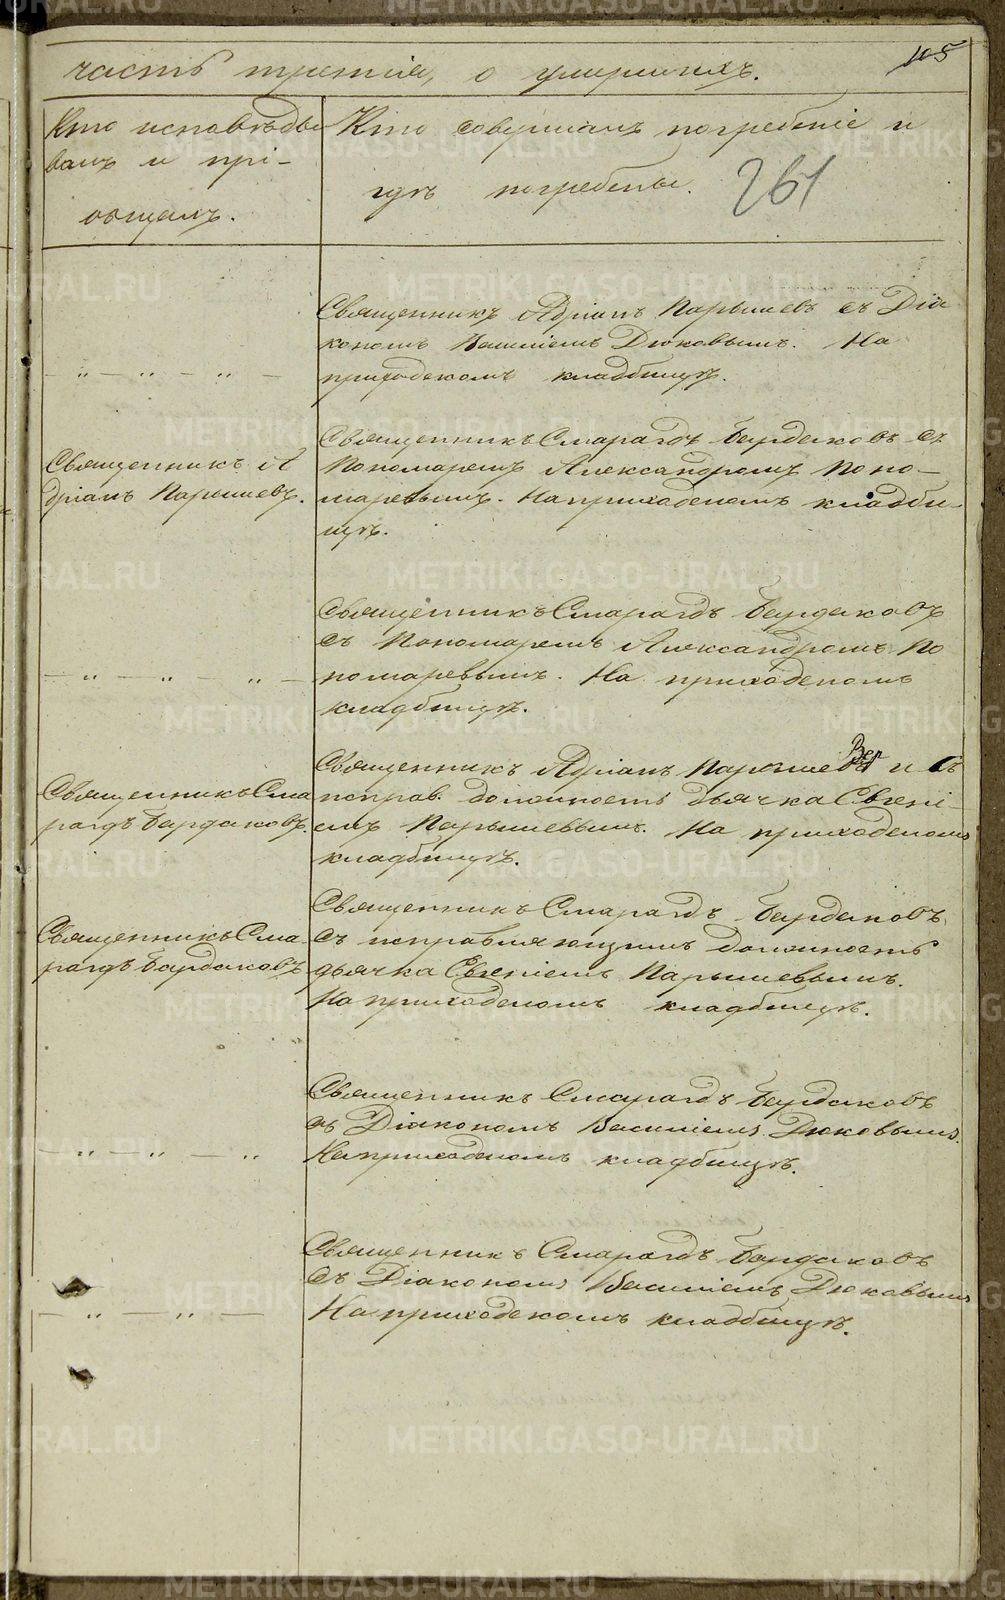 часть третія, о умершихъ.
105
Кто исповѣды
валъ и прі-
общалъ.
Кто совершалъ погребеніе и
гдѣ погребены.
261
Священникъ Адріанъ Парышевъ съ Діа
кономъ Василіемъ Дюковымъ. На
приходскомъ кладбищѣ.
— „ — „ — „ —
Священникъ А
дріанъ Парышевъ.
Священникъ Смарагдъ Бардаковъ съ
Пономаремъ Александромъ Поно-
маревымъ. На приходскомъ кладби-
щѣ.
Священникъ Смарагдъ Бардаковъ
съ Пономаремъ Александромъ По
номаревымъ. На приходскомъ
кладбищѣ.
— „ — „ — „ —
Священникъ Сма
рагдъ Бардаковъ.
Священникъ Адріанъ Парышевъ и съ
исправ. должность дьячка Евгені-
емъ Парышевымъ. На приходскомъ
кладбищѣ.
Священникъ Сма-
рагдъ Бардаковъ
Священникъ Смарагдъ Бардаковъ
съ исправляющимъ должность
дьячка Евгеніемъ Парышевымъ.
На приходскомъ кладбищѣ.
Священникъ Смарагдъ Бардаковъ
съ Діакономъ Василіемъ Дюковымъ.
На приходскомъ кладбищѣ.
— „ — „ — „
Священникъ Смарагдъ Бардаковъ
съ Діакономъ Василіемъ Дюковымъ
На приходскомъ кладбищѣ.
— „ — „ —
METRIKI.GASO-URAL.RU